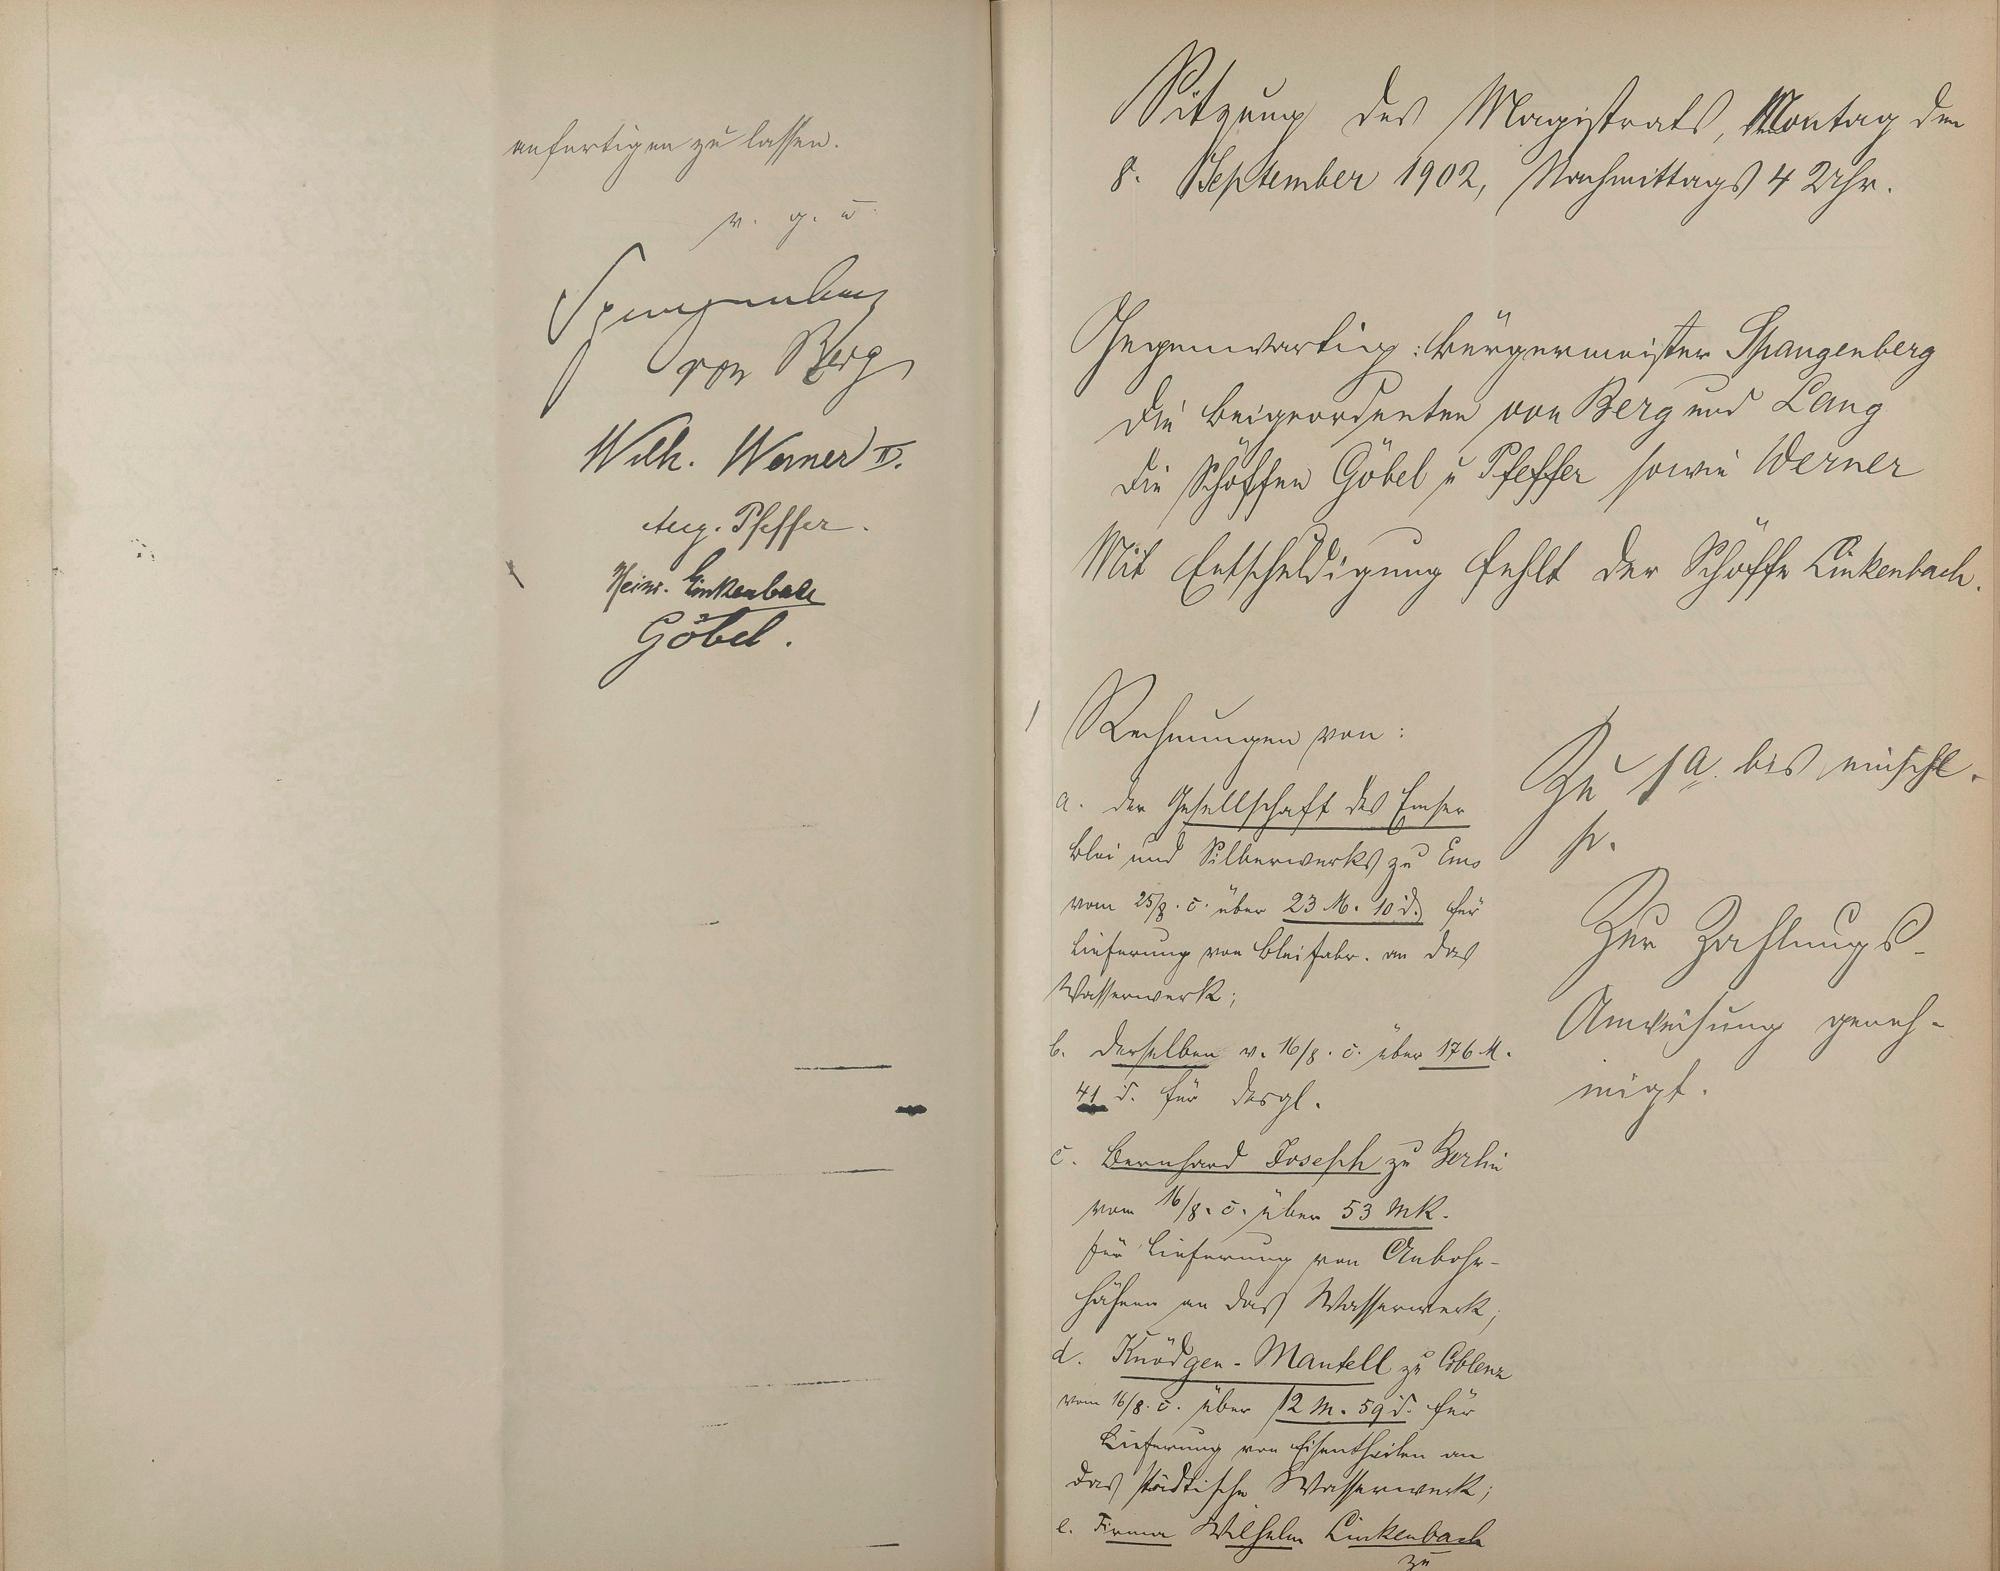 anfertigen zu lassen.
v. g. u.
Spangenberg
von Berg
Wilh. Werner II.
Aug. Pfeffer.
Heinr. Linkenbach
Göbel.
Sitzung des Magistrats, Montag den
8. September 1902, Nachmittags 4 Uhr.
Gegenwärtig: Bürgermeister Spangenberg
die Beigeordneten von Berg und Lang
die Schöffen Göbel u Pfeffer sowie Werner
Mit Entschuldigung fehlt der Schöffe Linkenbach.
1
Rechnungen von:
a. der Gesellschaft des Emser
Blei und Silberwerks zu Ems
vom 25/8. c. über 23 M. 10 d. für
Lieferung von Bleifabr. an das
Wasserwerk;
b. derselben v. 16/8. c. über 176 M.
41 d. für desgl.
c. Bernhard Joseph zu Berlin
vom 16/8. c. über 53 Mk.
für Lieferung von Anbohr-
hähnen an das Wasserwerk;
d. Knödgen-Mantell zu Coblenz
vom 16/8. c. über 12 M. 59 d. für
Lieferung von Eisentheilen an
das städtische Wasserwerk;
e. Firma Wilhelm Linkenbach
zu
Zu 1a. bis einschl.
Zur Zahlungs-
Anweisung geneh-
migt.